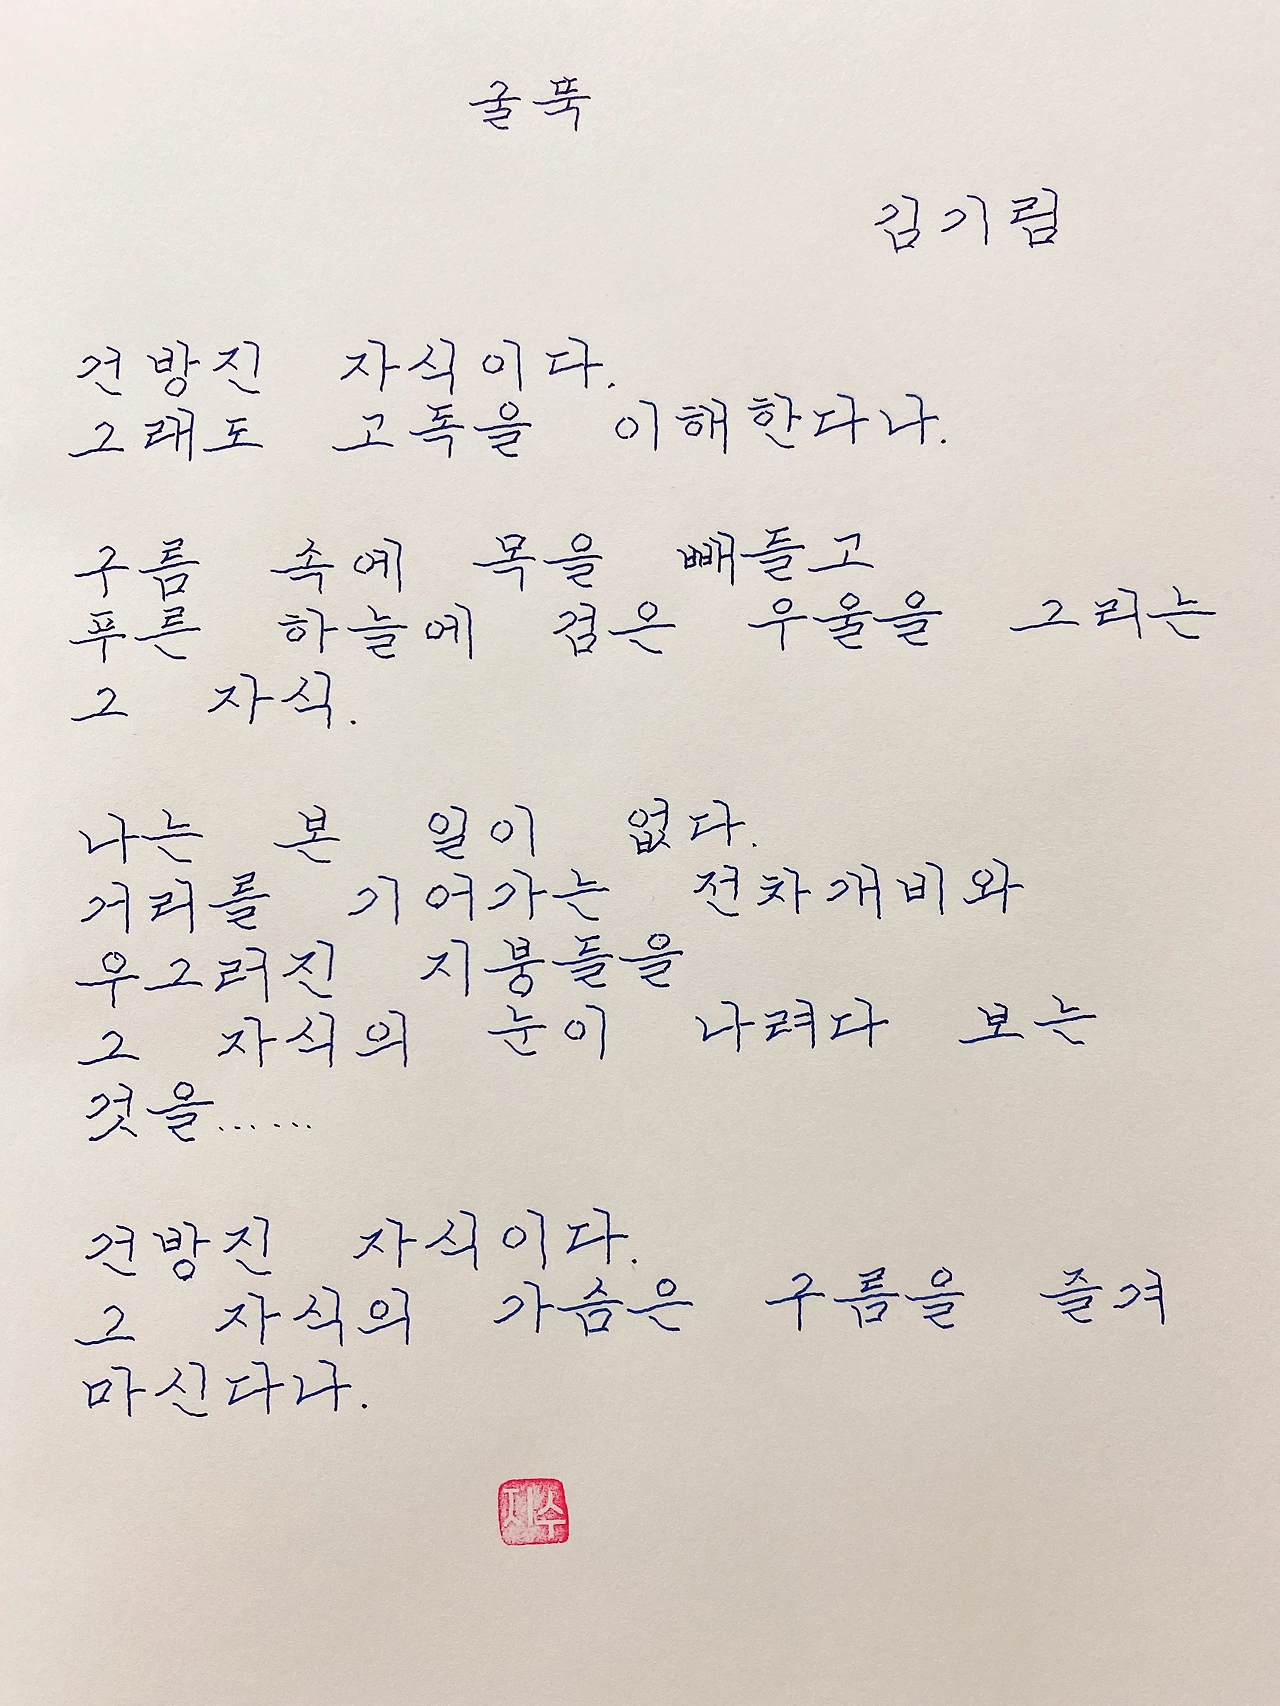 굴뚝
김기림
건방진 자식이다.
그래도 고독을 이해한다나.
구름 속에 목을 빼들고
푸른 하늘에 검은 우울을 그리는
그 자식.
나는 본 일이 없다.
거리를 기어가는 전차개비와
우그러진 지붕들을
그 자식의 눈이 나려다 보는
것을......
건방진 자식이다.
그 자식의 가슴은 구름을 즐겨
마신다나.
자수